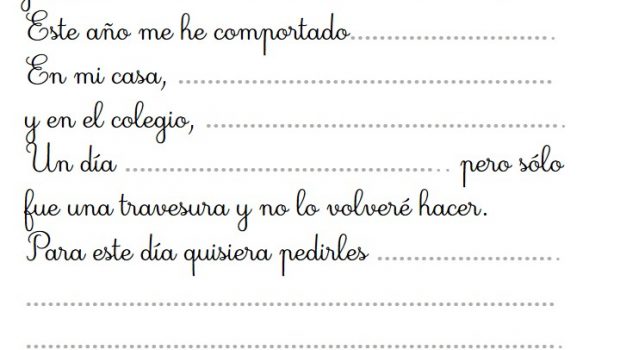 Este año me he comportado..............................
En mi casa, ..........................................................
y en el colegio, .......................................................
Un día .................................................. pero sólo
fue una travesura y no lo volveré hacer.
Para este día quisiera pedirles ............................
..................................................................................
..................................................................................